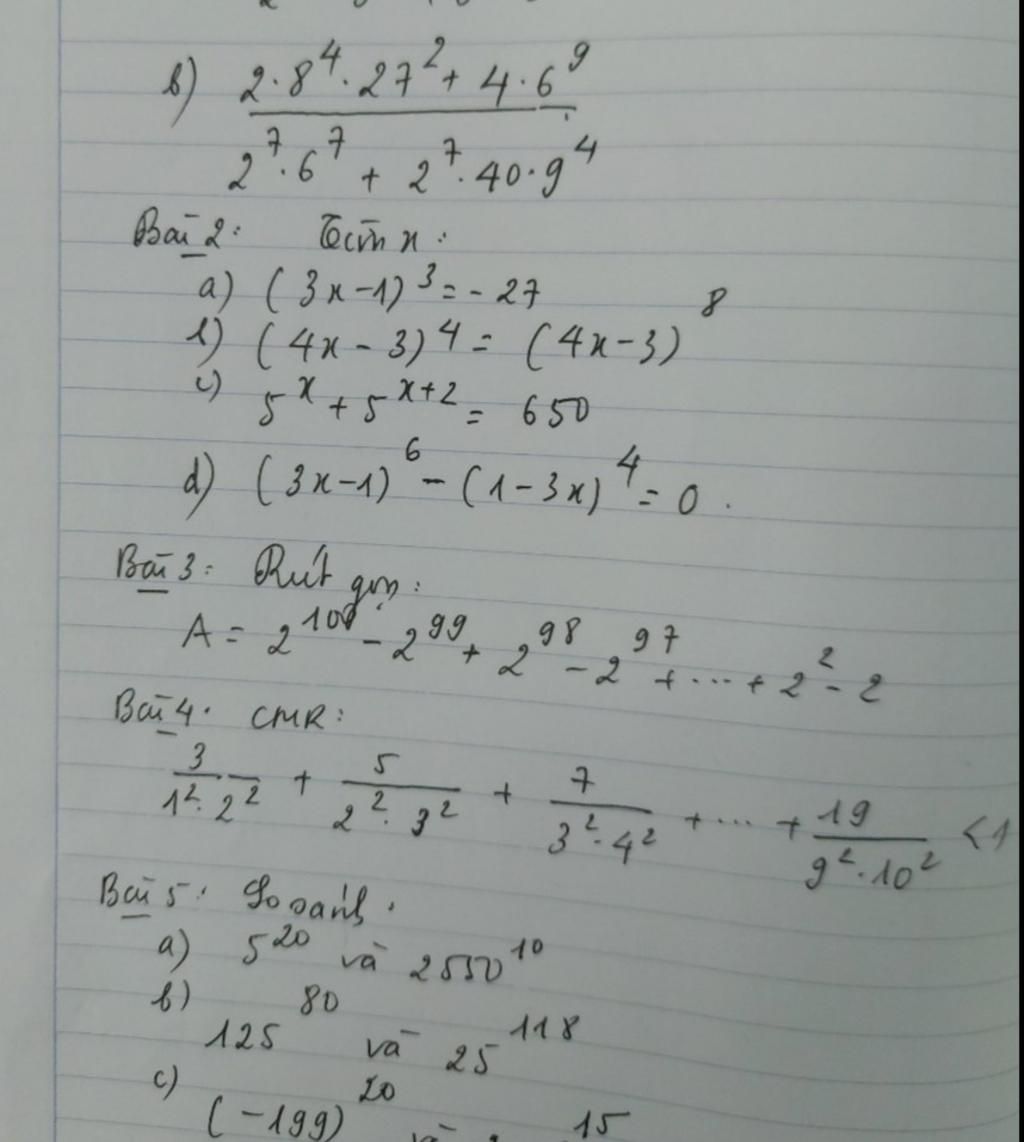 b) (2·8^4·27^2 + 4·6^9) / (2^7·6^7 + 2^7·40·9^4)
Bài 2: Tìm x:
a) (3x-1)^3 = -27
b) (4x-3)^4 = (4x-3)^8
c) 5^x + 5^{x+2} = 650
d) (3x-1)^6 - (1-3x)^4 = 0.
Bài 3: Rút gọn:
A = 2^100 - 2^99 + 2^98 - 2^97 + ... + 2^2 - 2
Bài 4. CMR:
3/(1^2·2^2) + 5/(2^2·3^2) + 7/(3^2·4^2) + ... + 19/(9^2·10^2) < 1
Bài 5: So sánh.
a) 5^20 và 2550^10
b) 125^80 và 25^118
c) (-199)^20 và 15